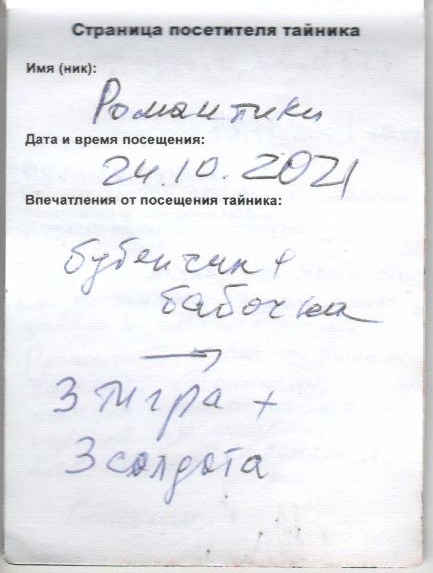 Страница посетителя тайника
Имя (ник):
Романтики
Дата и время посещения:
24.10.2021
Впечатления от посещения тайника:
бубенчик +
бабочка
→
3 тигра +
3 солдата